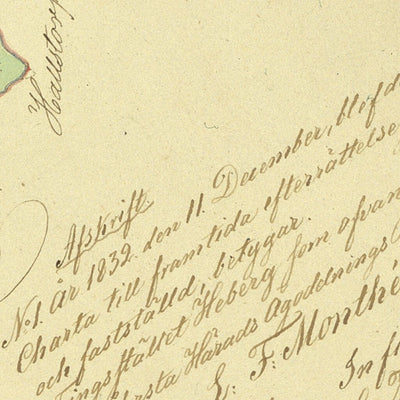 Hallstorp
Afskrift.
No 1. År 1839 den 11 December, blef d
Charta till framtida efterrättelse
och fastställd, betygar.
ingsstället Heberg som ofvan
Härads Ägodelnings
L. F. Monthé
In fi